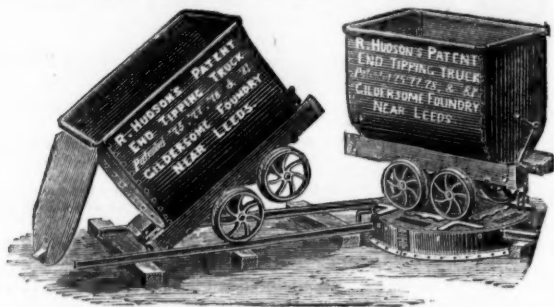 R. HUDSON'S PATENT
END TIPPING TRUCK
Patented '75 '77 '78 & '81
GILDERSOME FOUNDRY
NEAR LEEDS.
R. HUDSON'S PATENT
END TIPPING TRUCK
GILDERSOME FOUNDRY
NEAR LEEDS.